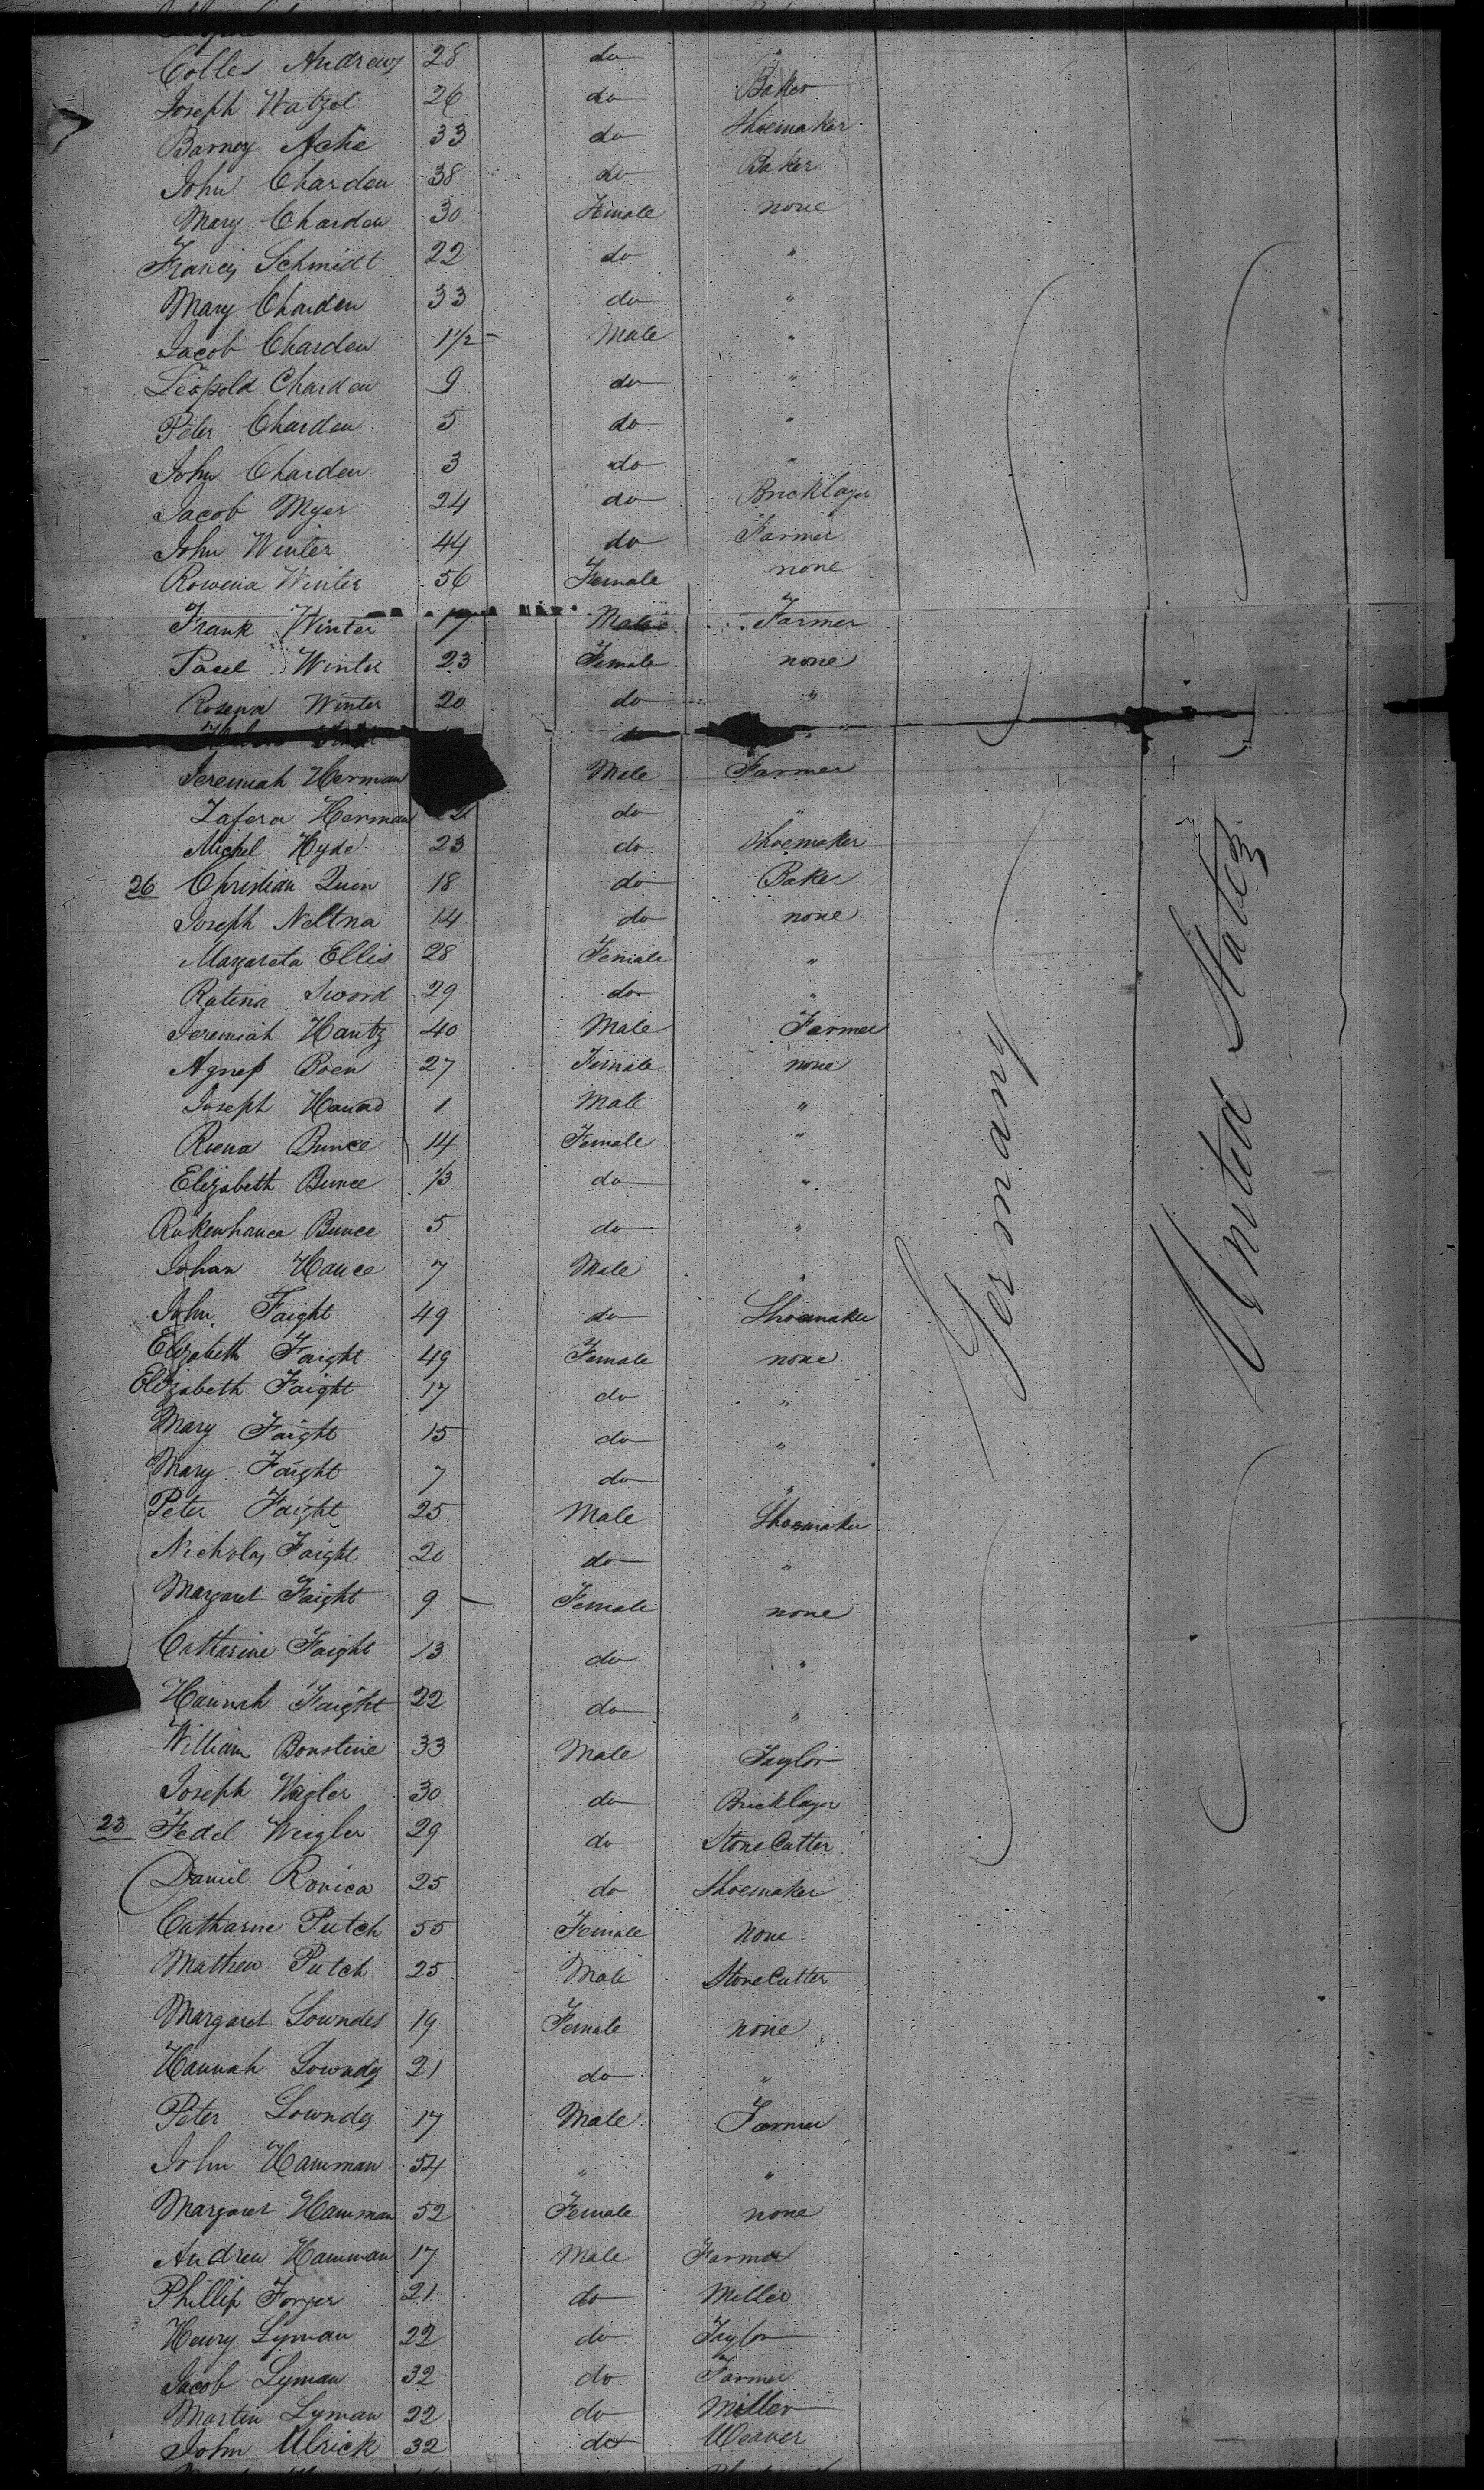 Colles Andrews 28 do "
Joseph Watzel 26 do Baker
Barney Ache 33 do Shoemaker
John Charden 38 do Baker
Mary Charden 30 Female none
Francis Schmidt 22 do "
Mary Charden 33 do "
Jacob Charden 1 1/2 Male "
Leopold Charden 9 do "
Peter Charden 5 do "
John Charden 3 do "
Jacob Myer 24 do Bricklayer
John Winter 44 do Farmer
Rowena Winter 56 Female none
Frank Winter 17 Male Farmer
Pasel Winter 23 Female none
Rosena Winter 20 do "
do "
Jeremiah Herman Male Farmer
Zafera Herman do "
Michel Hyde 23 do Shoemaker
26 Christian Quin 18 do Baker
Joseph Neltna 14 do none
Margareta Ellis 28 Female "
Ratena Sword 29 do "
Jeremiah Hantz 40 Male Farmer
Agness Boen 27 Female none
Joseph 1 Male "
Rena Bunce 14 Female "
Elizabeth Bunce 13 do "
Rukenhance Bunce 5 do "
Johan Hance 7 Male "
John Faight 49 do Shoemaker
Elizabeth Faight 49 Female none
Elizabeth Faight 17 do "
Mary Faight 15 do "
Mary Faight 7 do "
Peter Faight 25 Male Shoemaker
Nicholas Faight 20 do "
Margaret Faight 9 Female none
Catharine Faight 13 do "
Hannah Faight 22 do "
William Bonstine 33 Male Taylor
Joseph Wigler 30 do Bricklayer
23 Fedel Weigler 29 do Stone Cutter
Daniel Ronica 25 do Shoemaker
Catharine Putch 55 Female None
Mathew Putch 25 Male Stone Cutter
Margaret Lowndes 19 Female none
Hannah Lownds 21 do "
Peter Lownds 17 Male Farmer
John Hamman 54 " "
Margaret Hamman 52 Female none
Andrew Hamman 17 Male Farmer
Phillip Forger 21 do Miller
Henry Lyman 22 do Taylor
Jacob Lyman 32 do Farmer
Martin Lyman 22 do Miller
John Ulrick 32 do Weaver
Germany
United States